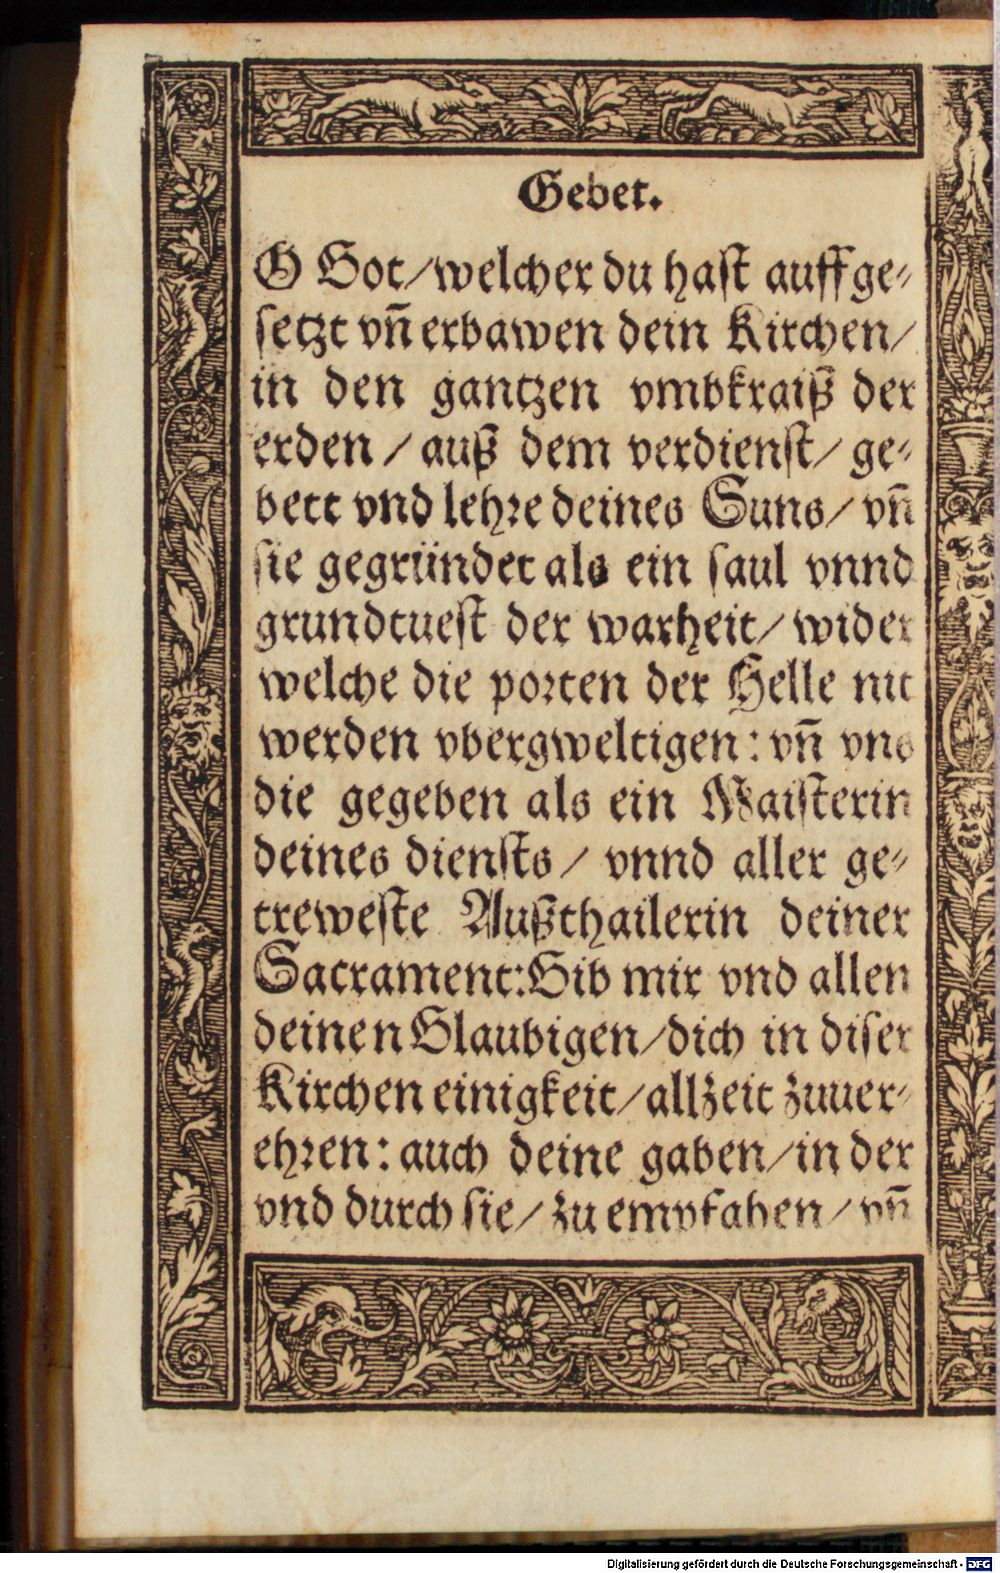 Gebet.
O Got/welcher du hast auffge⸗
setzt vñ erbawen dein Kirchen/
in den gantzen vmbkraiß der
erden / auß dem verdienst/ ge⸗
bett vnd lehꝛe deines Suns/ vñ
sie gegründet als ein saul vnnd
grundtuest der warheit/ wider
welche die poꝛten der Helle nit
werden vbergweltigen: vñ vns
die gegeben als ein Maisterin
deines diensts / vnnd aller ge⸗
treweste Außthailerin deiner
Sacrament:Gib mir vnd allen
deinen Glaubigen/dich in diser
Kirchen einigkeit/allzeit zuuer⸗
ehꝛen: auch deine gaben/in der
vnd durch sie/ zu empfahen/ vñ
Digitalisierung gefördert durch die Deutsche Forschungsgemeinschaft - DFG